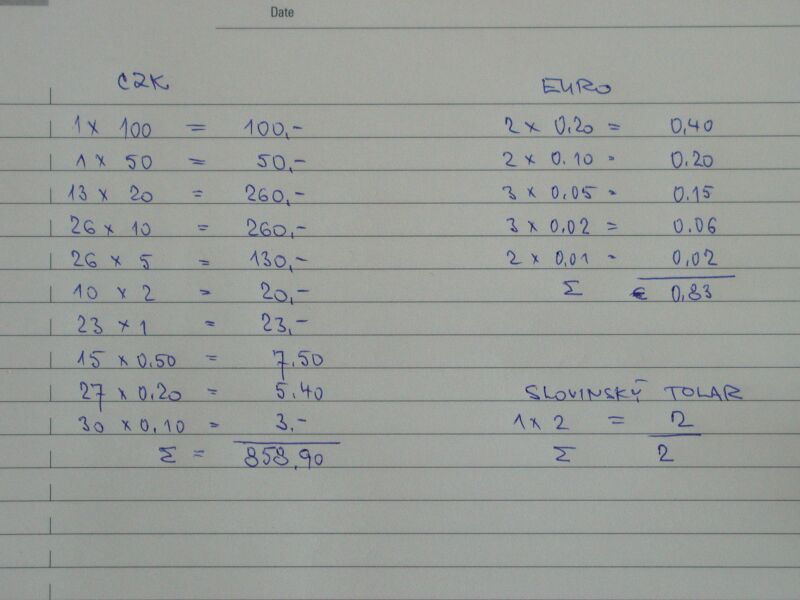 Date
CZK
1 x 100 = 100,-
1 x 50 = 50,-
13 x 20 = 260,-
26 x 10 = 260,-
26 x 5 = 130,-
10 x 2 = 20,-
23 x 1 = 23,-
15 x 0,50 = 7,50
27 x 0,20 = 5,40
30 x 0,10 = 3,-
Σ = 858,90
EURO
2 x 0,20 = 0,40
2 x 0.10 = 0.20
3 x 0,05 = 0.15
3 x 0,02 = 0.06
2 x 0,01 = 0,02
Σ € 0,83
SLOVINSKÝ TOLAR
1 x 2 = 2
Σ 2